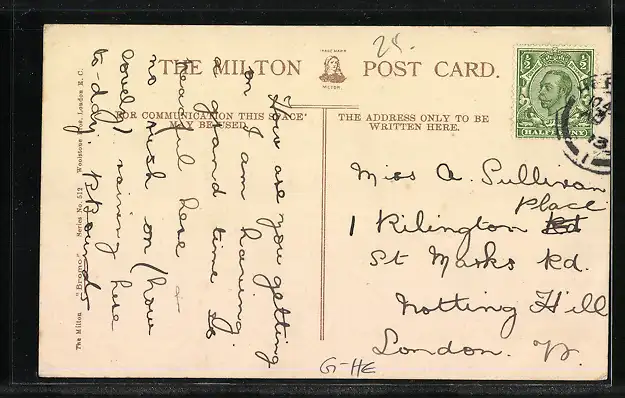 24.
THE MILTON POST CARD.
TRADE MARK
MILTON
FOR COMMUNICATION THIS SPACE
MAY BE USED.
THE ADDRESS ONLY TO BE
WRITTEN HERE.
How are you getting
on I am having
a grand time it
beautiful here
no rush on (how
lovely) raining here
to-day.
Miss A. Sullivan
Place
1 Rilington Rd
St Marks Rd.
Notting Hill
London. W.
G-HE
½ ½
HALFPENNY
13
The Milton "Bromo" Series No. 512 Woolstone Bros. London E.C.